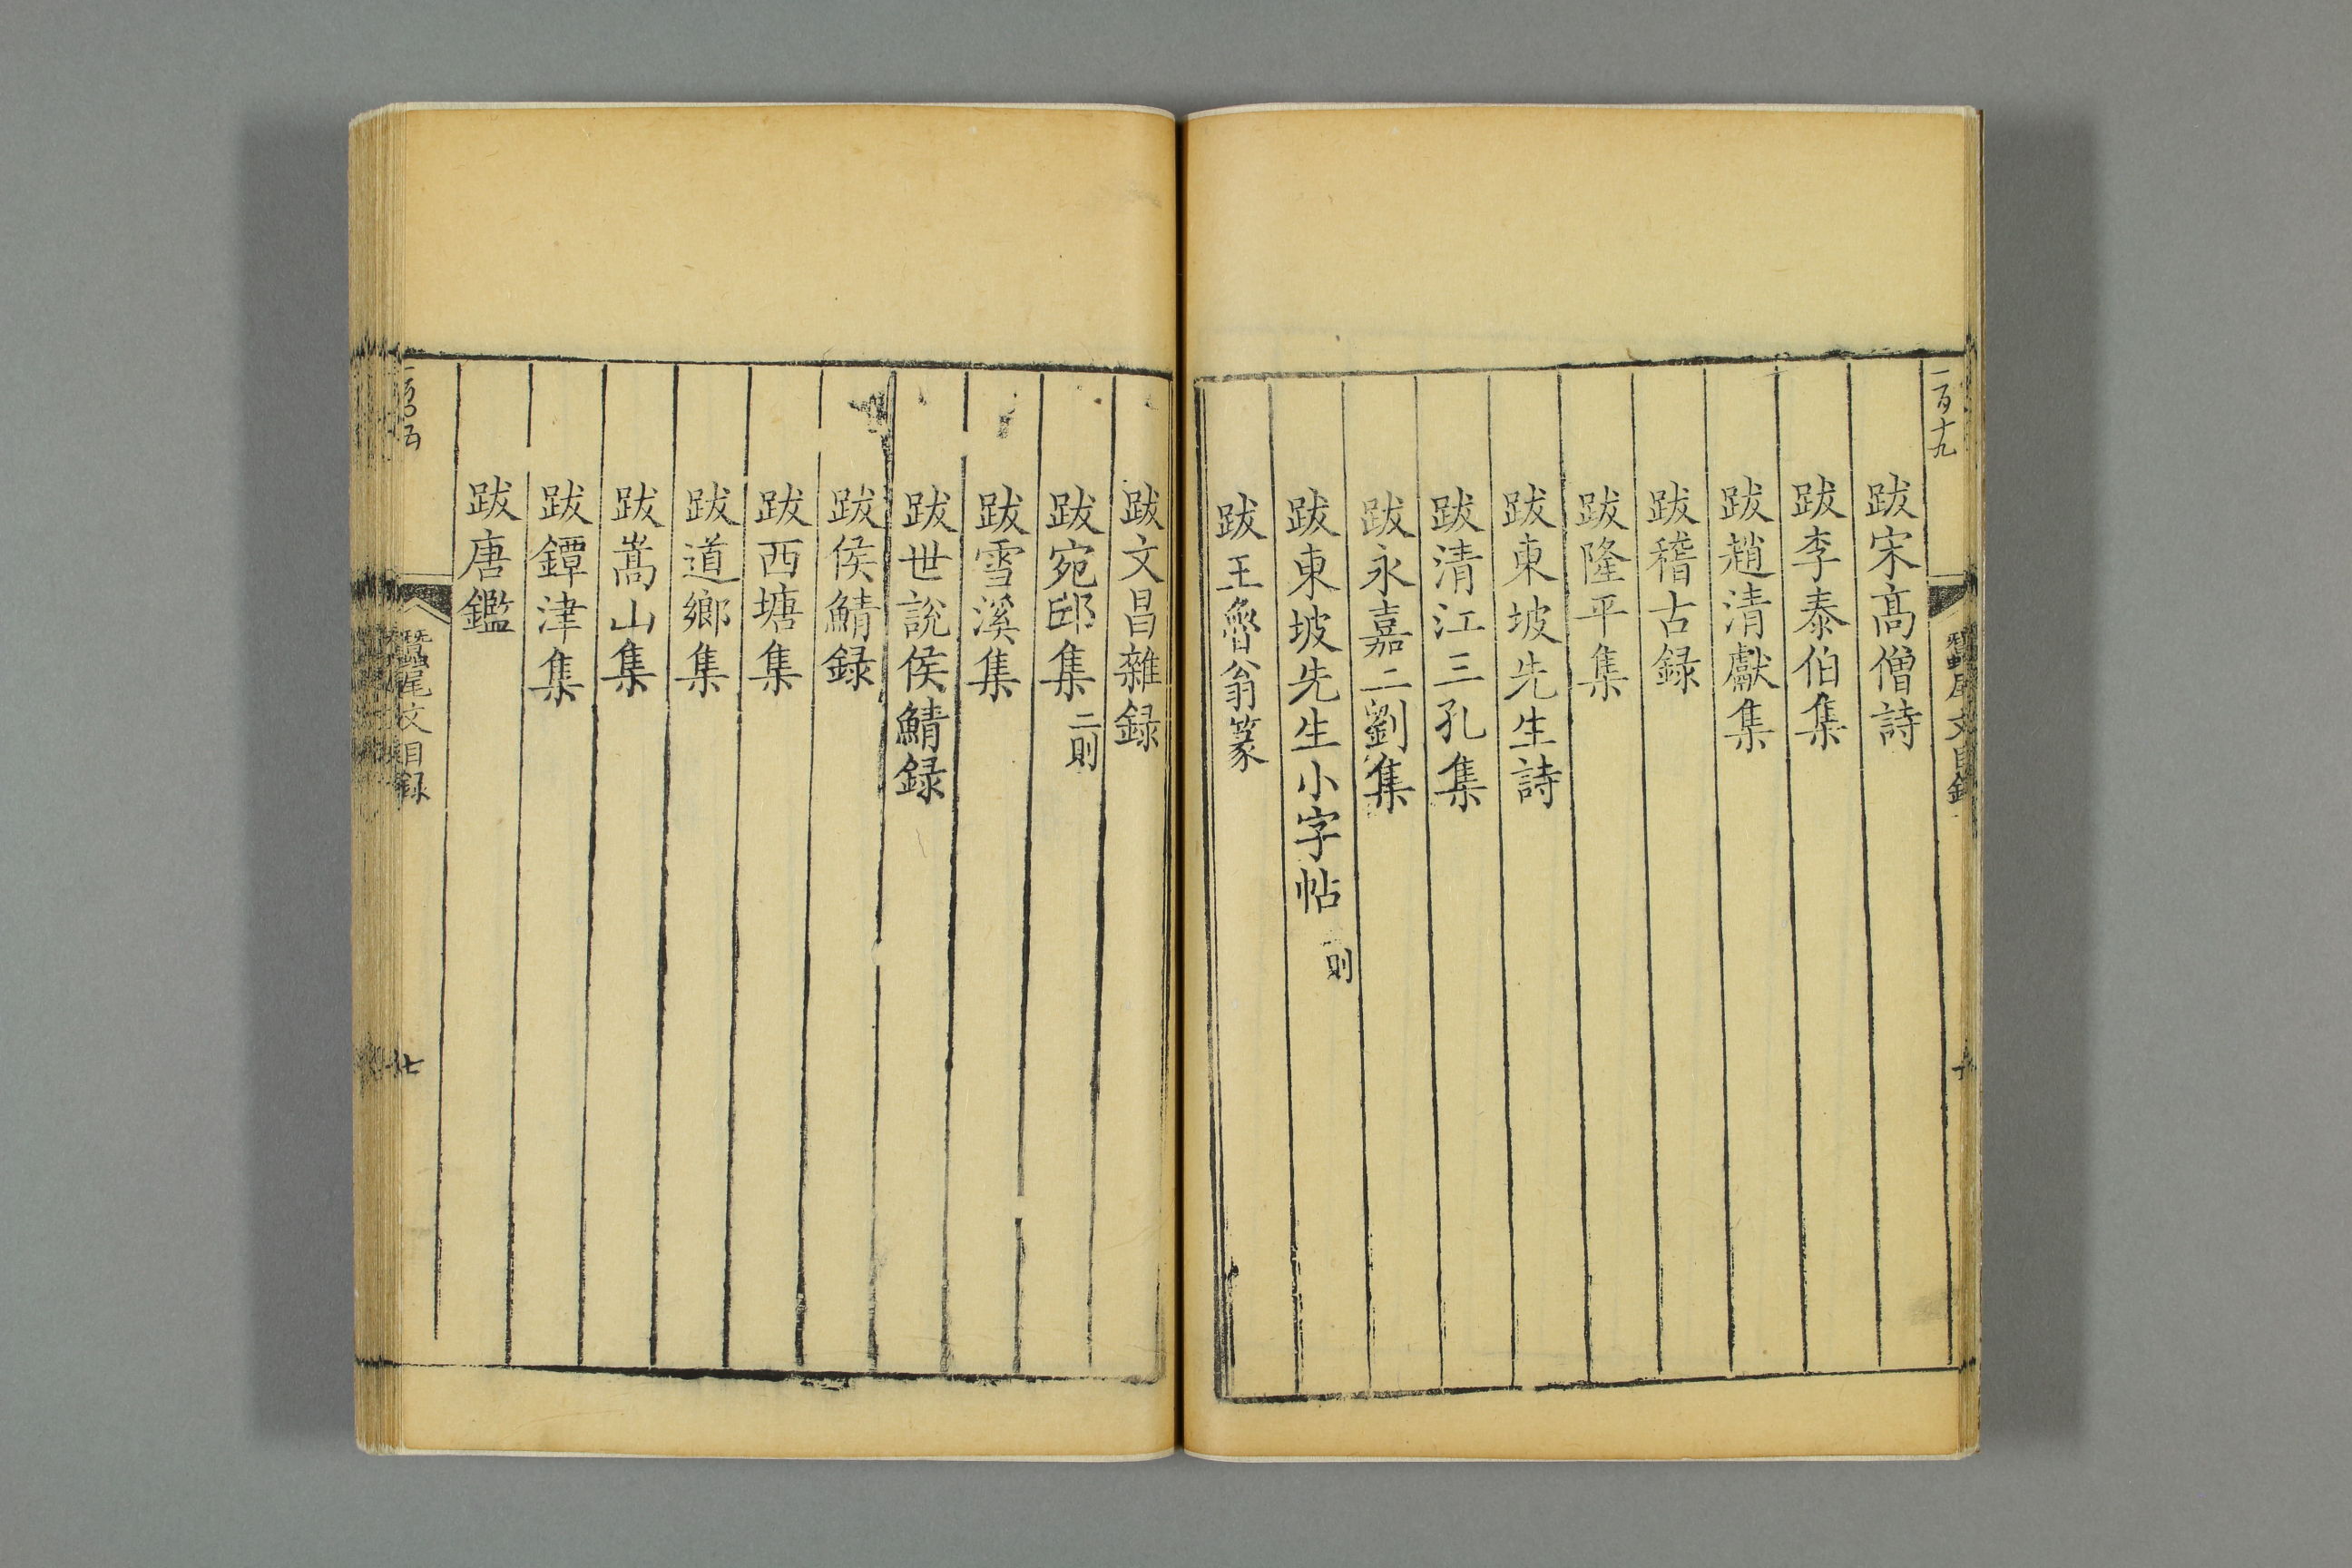 一百十九
蠶尾文目録
跋宋高僧詩
跋李泰伯集
跋趙清獻集
跋稽古録
跋隆平集
跋東坡先生詩
跋清江三孔集
跋永嘉二劉集
跋東坡先生小字帖 則
跋王魯翁篆
跋文昌雜録
跋宛邱集 二則
跋雪溪集
跋世說侯鯖録
跋侯鯖録
跋西塘集
跋道鄉集
跋嵩山集
跋鐔津集
跋唐鑑
蠶尾文目録
七